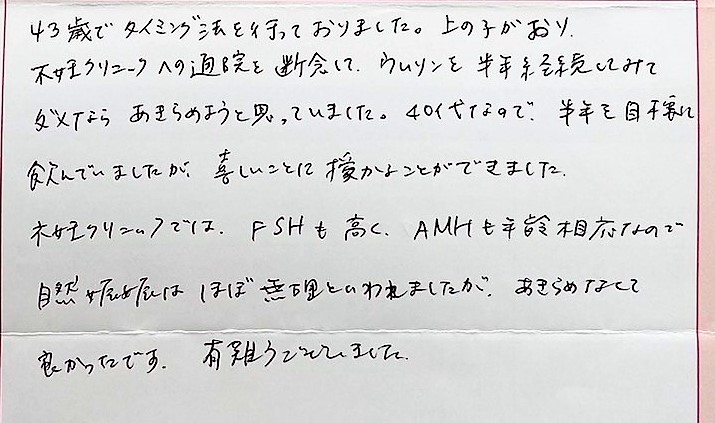 43歳でタイミング法を行っておりました。上の子がおり、
不妊クリニックへの通院を断念して、ウムリンを半年継続してみて
ダメなら あきらめようと思っていました。40代なので、半年を目標に
飲んでいましたが、喜しいことに授かることができました。
不妊クリニックでは、FSHも高く、AMHも年齢相応なので
自然妊娠は ほぼ無理といわれましたが、あきらめなくて
良かったです。 有難うございました。